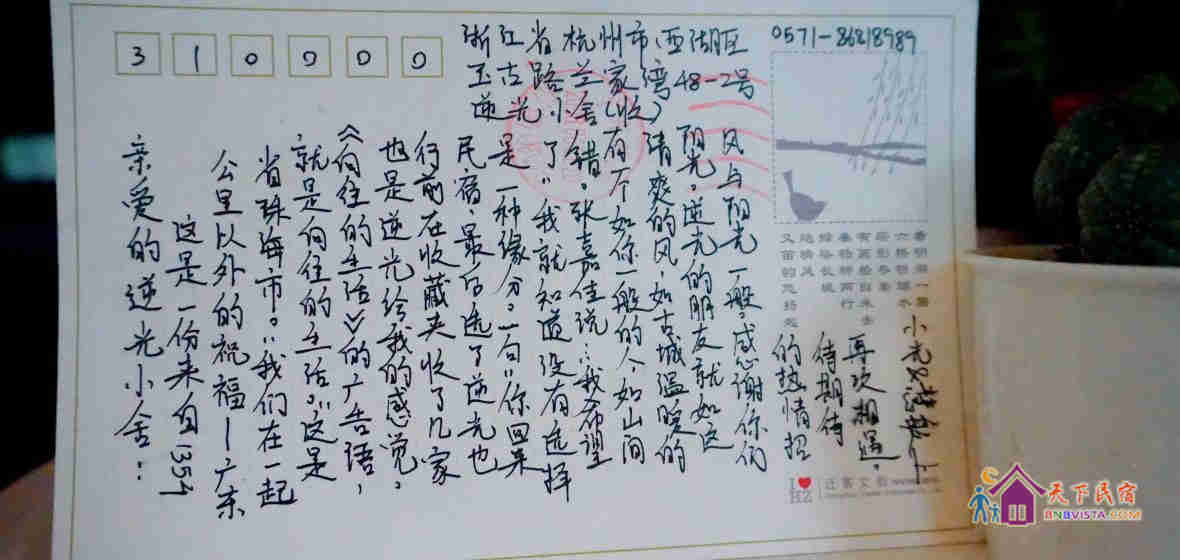 310000
浙江省杭州市西湖区
0571-86218989
玉古路兰家湾48-2号
逆光小舍(收)
亲爱的逆光小舍：
这是一份来自1354
公里以外的祝福—广东
省珠海市。"我们在一起
就是向往的生活。"这是
《向往的生活》的广告语，
也是逆光给我的感觉。
行前在收藏夹收了几家
民宿，最后选了逆光也
是一种缘分。一句"你回来
了"，我就知道没有选择
错。张嘉佳说："我希望
有个如你一般的人，如山间
清爽的风，如古城温暖的
阳光。"逆光的朋友就如这
风与阳光一般。感谢你们
的热情招
待期待
再次相遇。
I❤HZ
天下民宿
BNBVISTA.COM